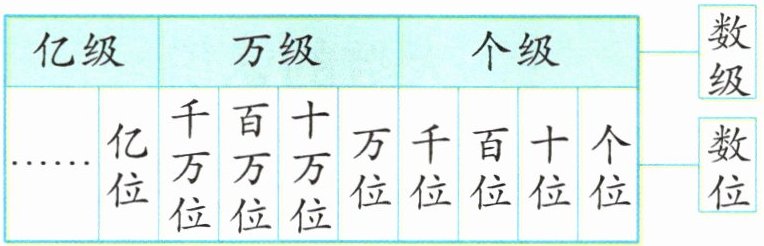 亿级 万级 个级 数级
…… 亿位 千万位 百万位 十万位 万位 千位 百位 十位 个位 数位